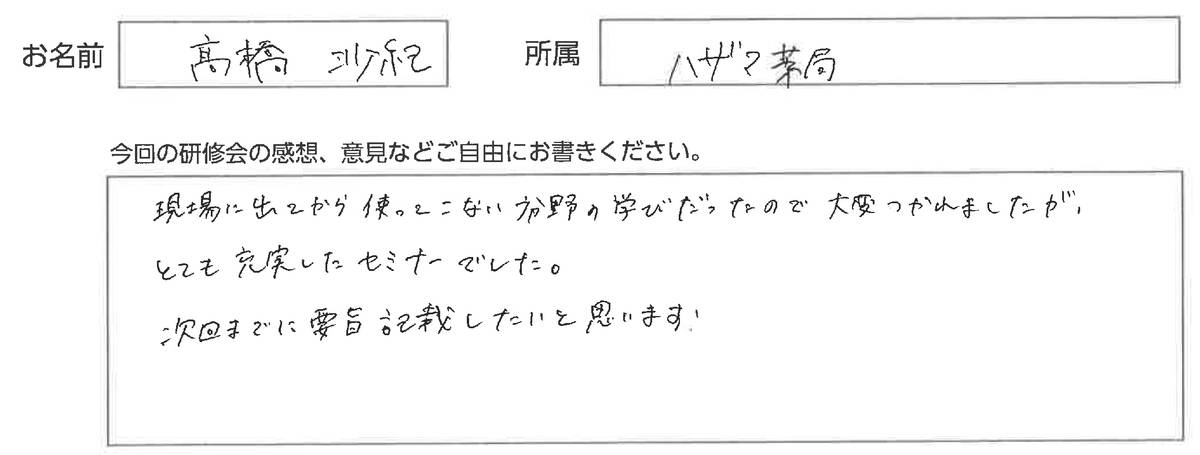 お名前 高橋 沙紀 所属 ハザマ薬局
今回の研修会の感想、意見などご自由にお書きください。
現場に出てから使ってこない分野の学びだったので大変つかれましたが、
とても充実したセミナーでした。
次回までに要旨記載したいと思います!